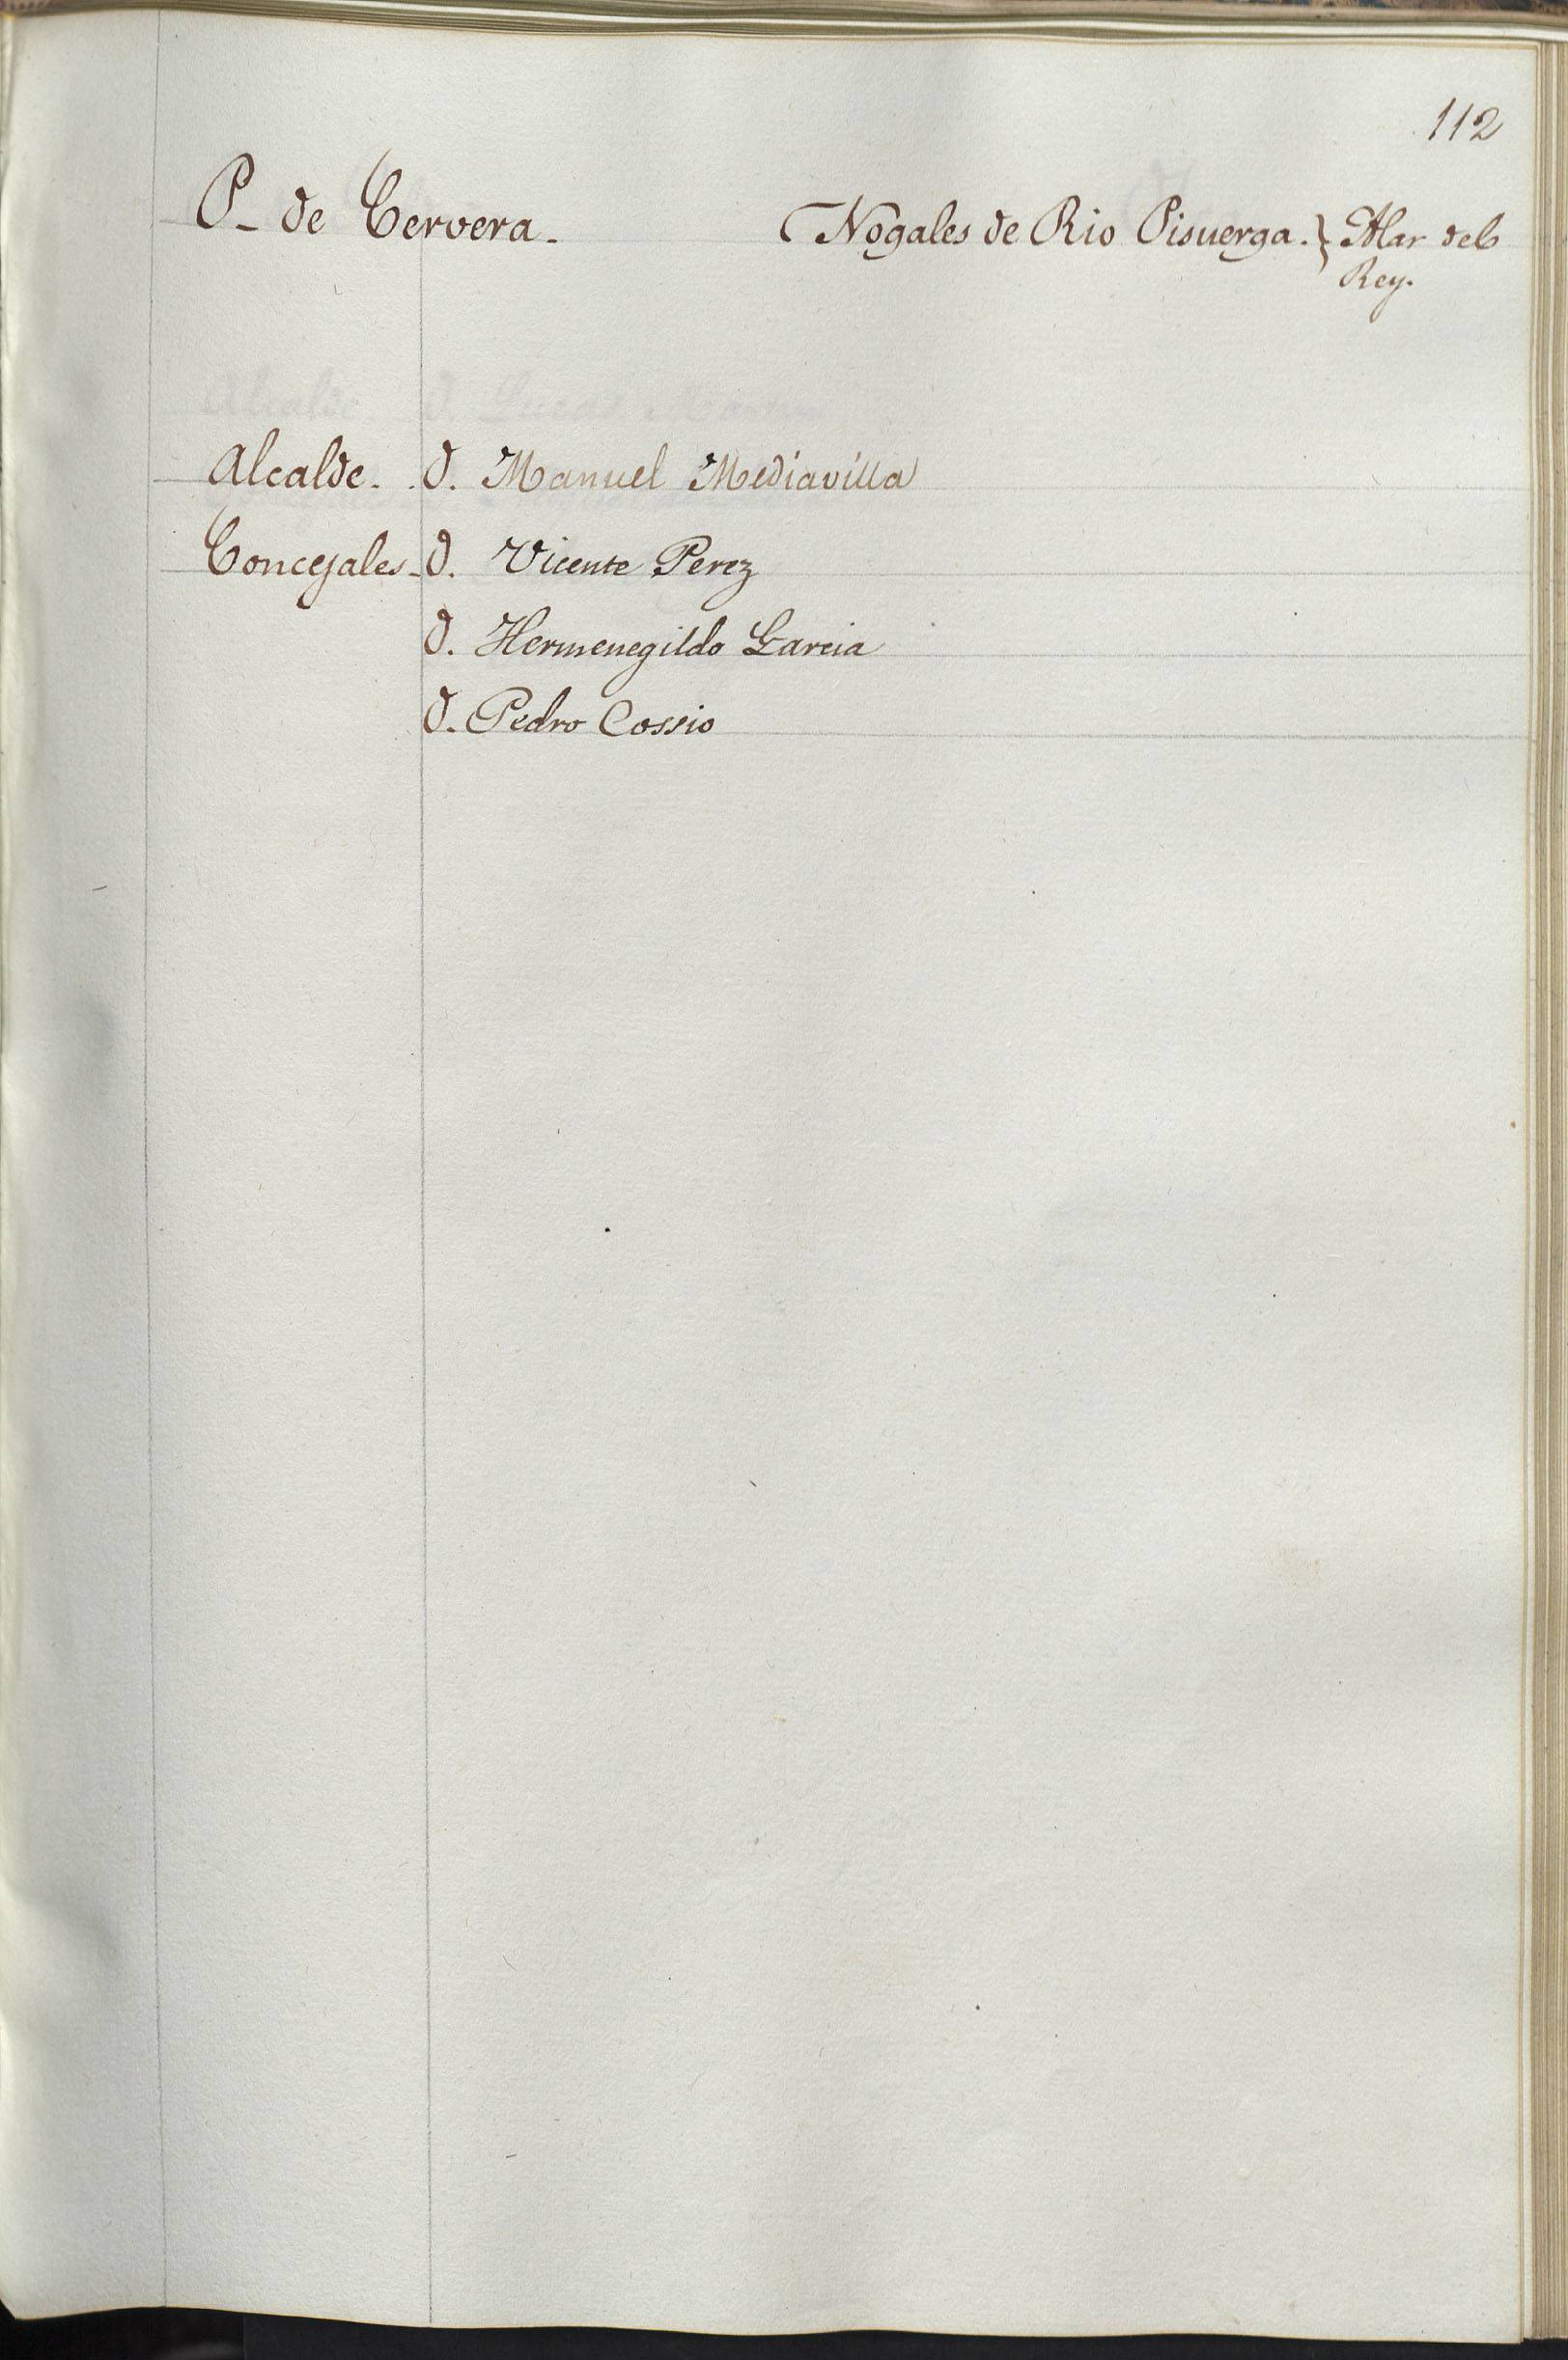 112
P- de Cervera- Nogales de Rio Pisuerga. } Alar del
Rey.
Alcalde. D. Manuel Mediavilla
Concejales- D. Vicente Perez
D. Hermenegildo Garcia
D. Pedro Cossio